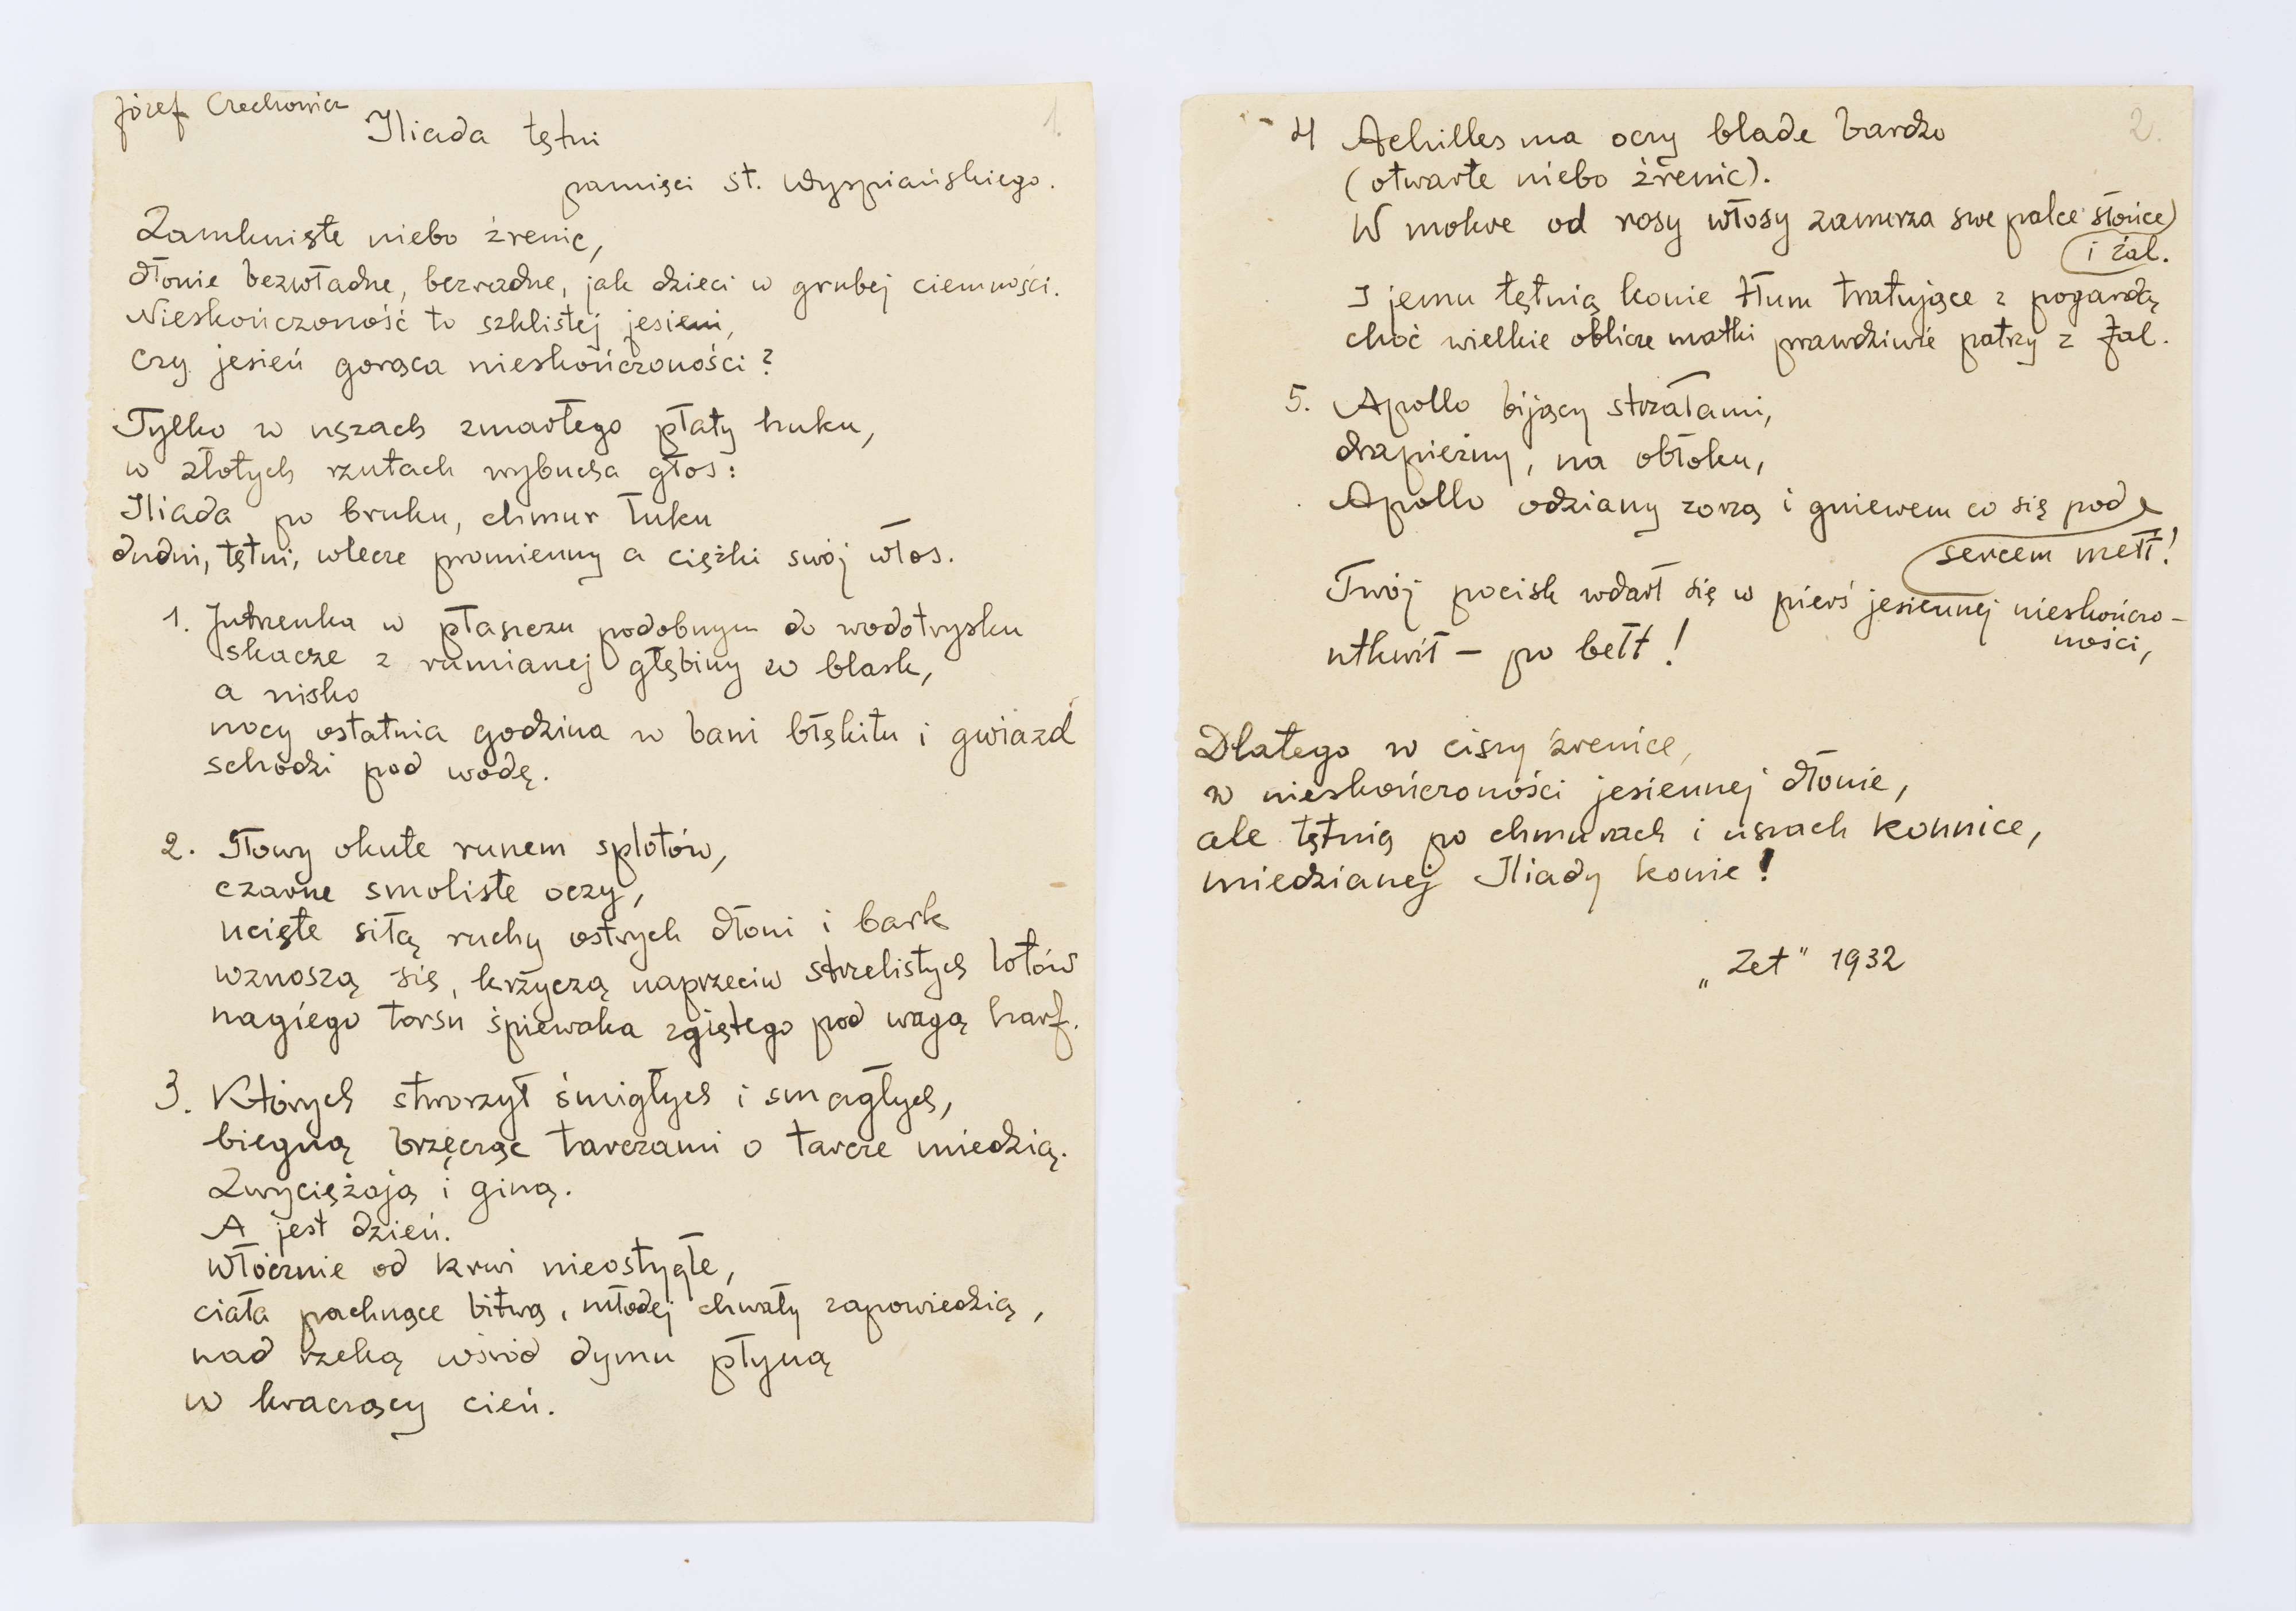 Józef Czechowicz
1.
Iliada tętni
pamięci St. Wyspiańskiego.
Zamknięte niebo źrenic,
dłonie bezwładne, bezradne, jak dzieci w grubej ciemności.
Nieskończoność to szklistej jesieni,
czy jesień gorąca nieskończoności?
Tylko w uszach zmarłego płaty huku,
w złotych rzutach wybucha głos:
Iliada po bruku, chmur łuku
dudni, tętni, wlecze promienny a ciężki swój włos.
1. Jutrzenka w płaszczu podobnym do wodotrysku
skacze z rumianej głębiny w blask,
a nisko
nocy ostatnia godzina w bani błękitu i gwiazd
schodzi pod wodę.
2. Głowy okute runem splotów,
czarne smoliste oczy,
ucięte siłą ruchy ostrych dłoni i bark
wznoszą się, krzyczą naprzeciw strzelistych lotów
nagiego torsu śpiewaka zgiętego pod wagą harf.
3. Których stworzył śmigłych i smagłych,
biegną brzęcząc tarczami o tarcze miedzią.
Zwyciężają i giną.
A jest dzień.
Włócznie od krwi nieostygłe,
ciała pachnące bitwą, młodej chwały zapowiedzią,
nad rzeką wśród dymu płyną
w kraczący cień.
2.
4 Achilles ma oczy blade bardzo
(otwarte niebo źrenic).
W mokre od rosy włosy zanurza swe palce słońce
i żal.
I jemu tętnią konie tłum tratujące z pogardą
choć wielkie oblicze matki prawdziwie patrzy z fal.
5. Apollo bijący strzałami,
drapieżny, na obłoku,
Apollo odziany zorzą i gniewem co się pod
sercem mełł!
Twój pocisk wdarł się w pierś jesiennej nieskończo-
ności,
utkwił – po bełt!
Dlatego w ciszy źrenice,
w nieskończoności jesiennej dłonie,
ale tętnią po chmurach i uszach konnice,
miedzianej Iliady konie!
„Zet" 1932